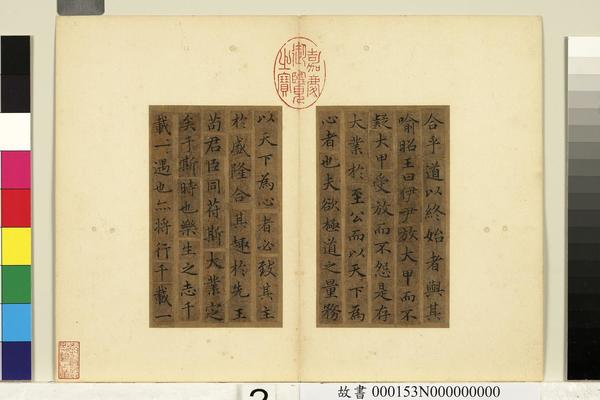 嘉慶
御覽
之寶
合乎道以終始者與其
喻昭王曰伊尹放大甲而不
疑大甲受放而不怨是存
大業於至公而以天下為
心者也夫欲極道之量務
以天下為心者必致其主
於盛隆合其趣於先王
苟君臣同苻斯大業定
矣于斯時也樂生之志千
載一遇也亦将行千載一
故書 000153N000000000